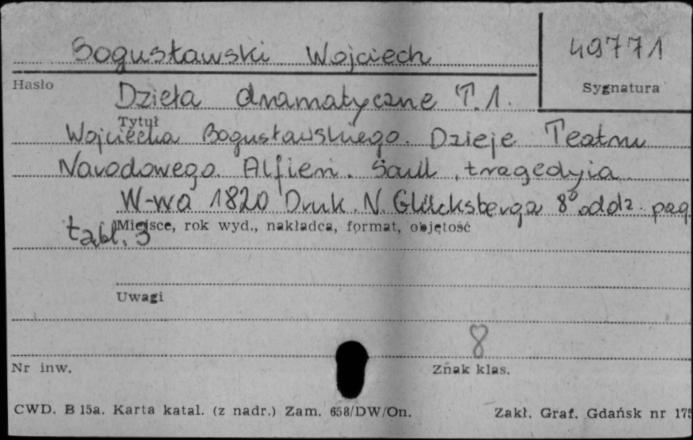 Bogusławski Wojciech
49771
Hasło
Sygnatura
Dzieła dramatyczne T.1.
Tytuł
Wojciecha Bogusławskiego. Dzieje Teatru
Narodowego. Alfieri. Saul, tragedyia
W-wa 1820 Druk. N. Glücksberga 8° oddz. pag.
tabl. 3
Miejsce, rok wyd., nakładca, format, objętość
Uwagi
8
Nr inw.
Znak klas.
CWD. B 15a. Karta katal. (z nadr.) Zam. 658/DW/On.
Zakł. Graf. Gdańsk nr 175